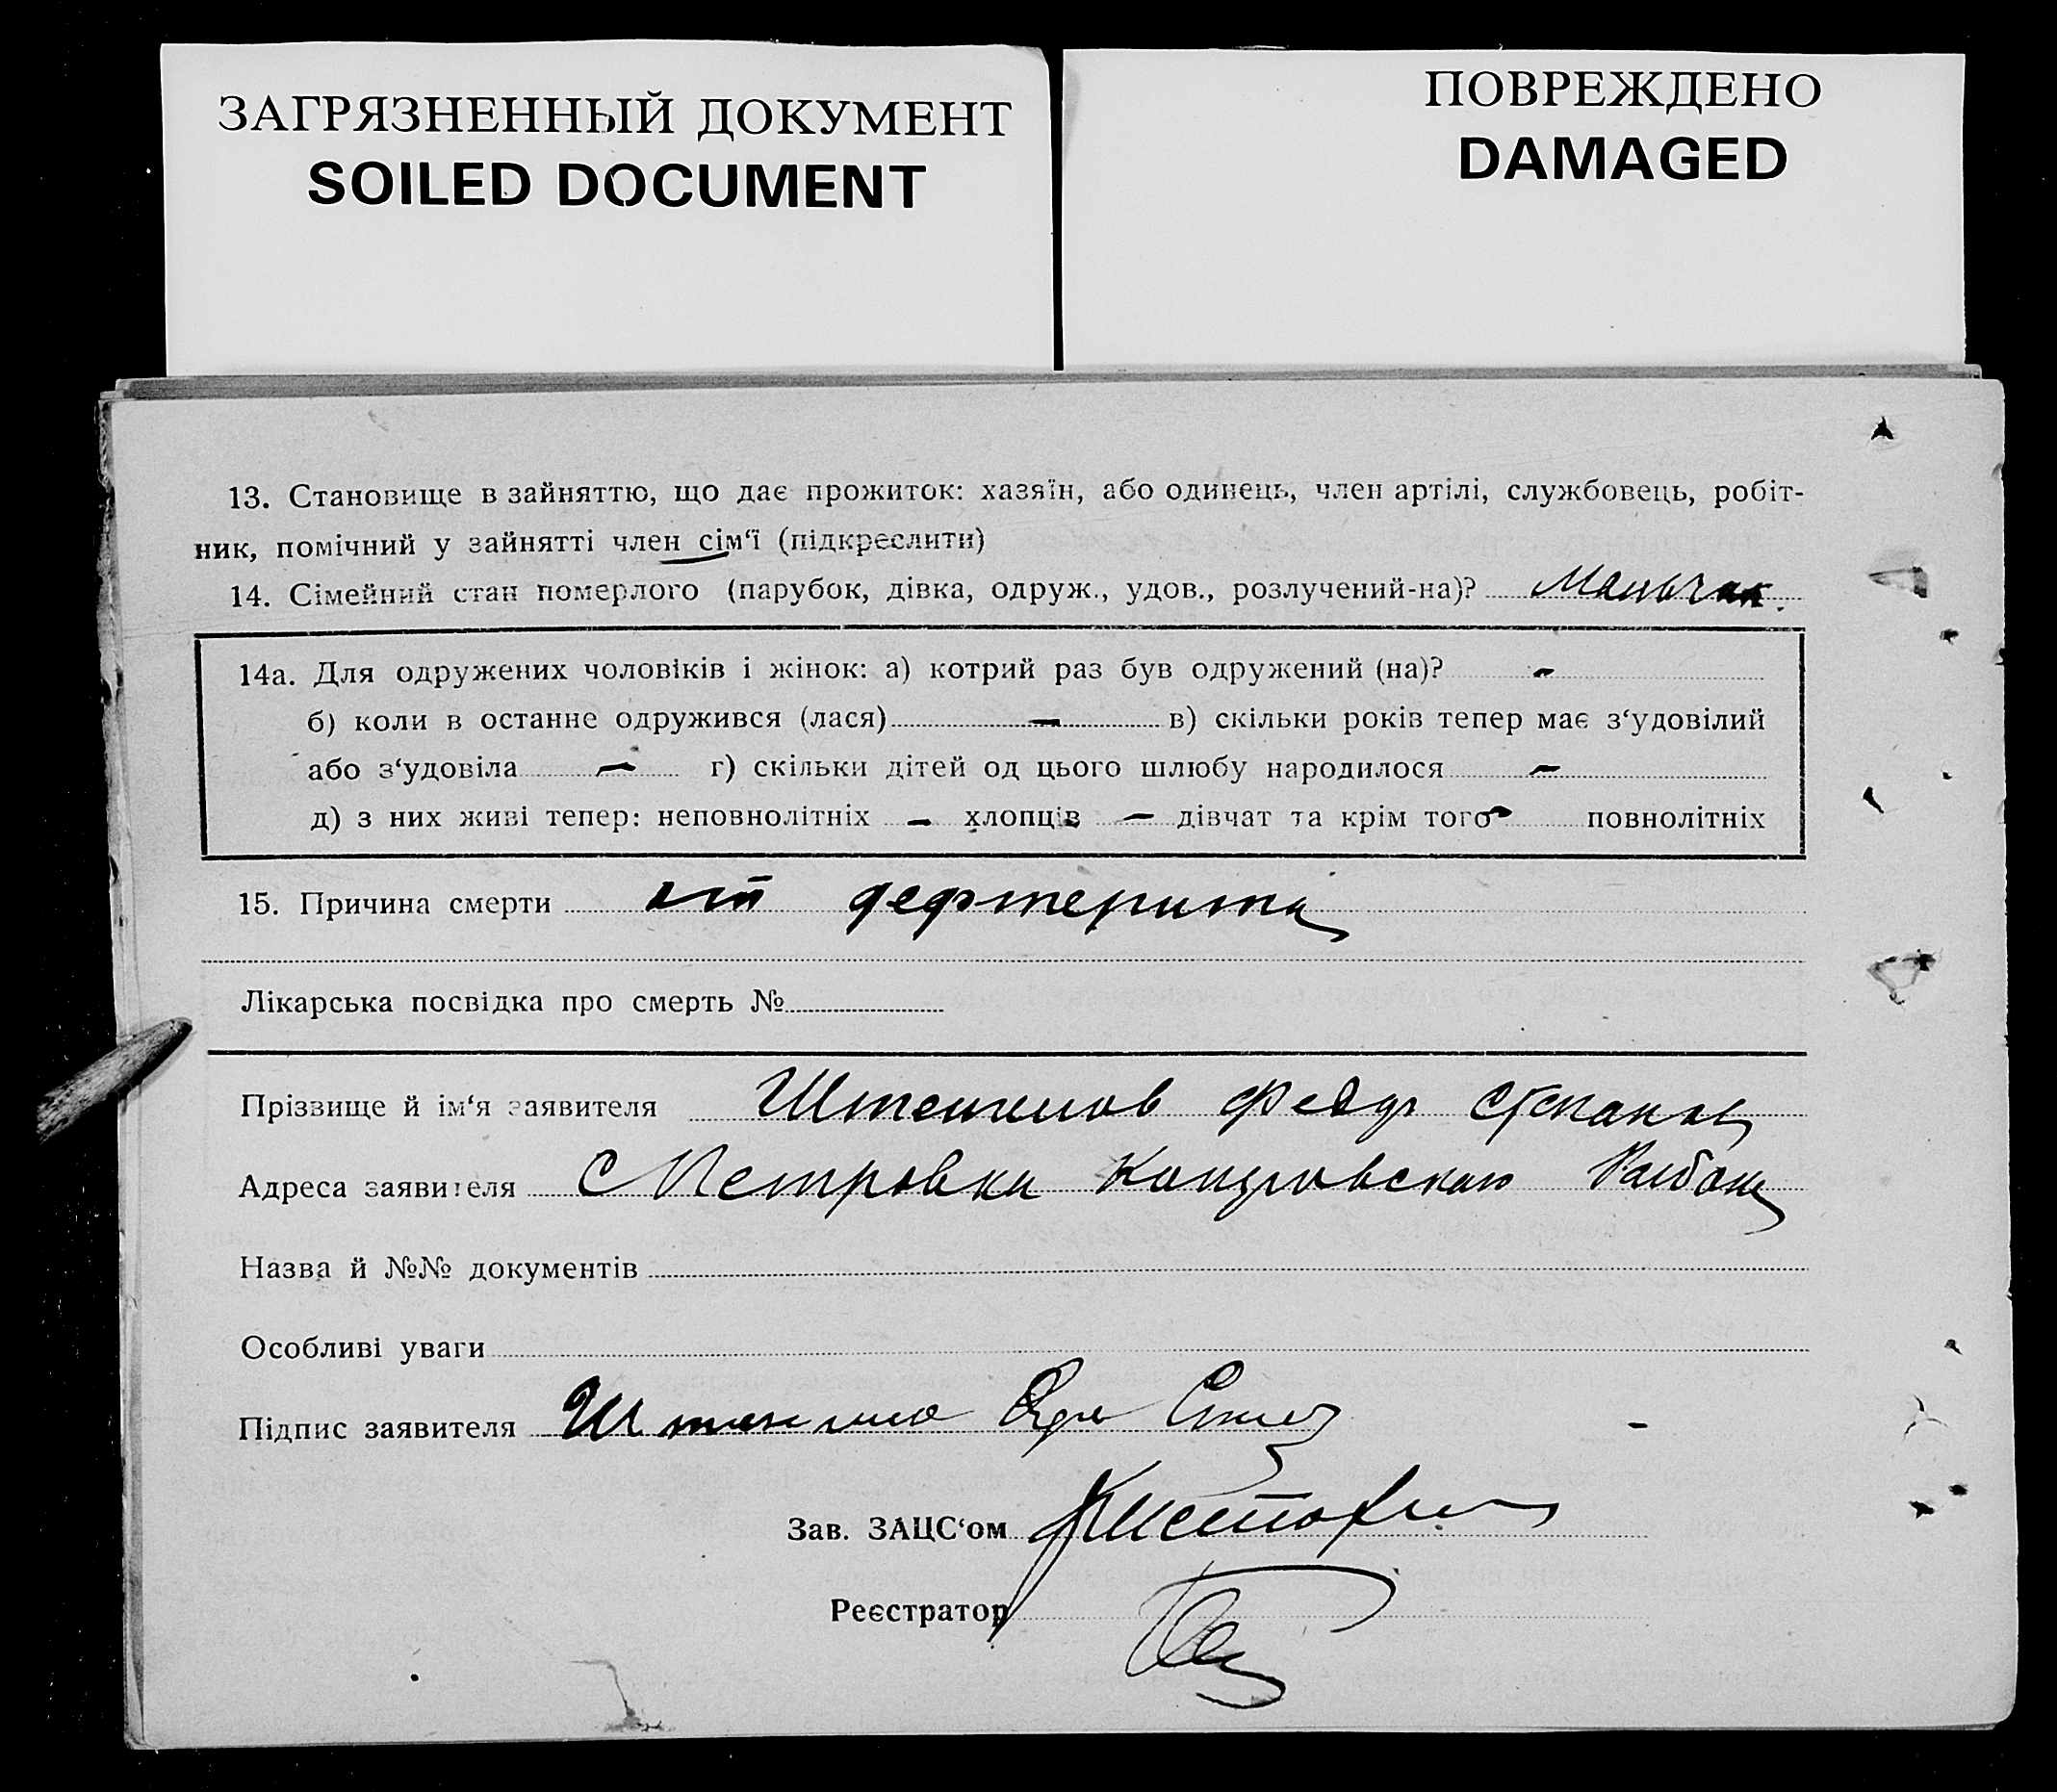 ЗАГРЯЗНЕННЫЙ ДОКУМЕНТ
SOILED DOCUMENT
ПОВРЕЖДЕНО
DAMAGED
13. Становище в зайняттю, що дає прожиток: хазяїн, або одинець, член артілі, службовець, робіт-
ник, помічний у зайнятті член сім‘ї (підкреслити)
14. Сімейний стан померлого (парубок, дівка, одруж., удов., розлучений-на)? Мальчик.
14а. Для одружених чоловіків і жінок: а) котрий раз був одружений (на)? -
б) коли в останне одружився (лася) - в) скільки років тепер має з‘удовілий
або з‘удовіла - г) скільки дітей од цього шлюбу народилося -
д) з них живі тепер: неповнолітніх - хлопців - дівчат та крім того - повнолітніх
15. Причина смерти от дефтерита
Лікарська посвідка про смерть №
Прізвище й ім‘я заявителя Федор Степаны
Адреса заявителя С Петровка
Назва й №№ документів
Особливі уваги
Підпис заявителя
Зав. ЗАЦС‘ом
Реєстратор